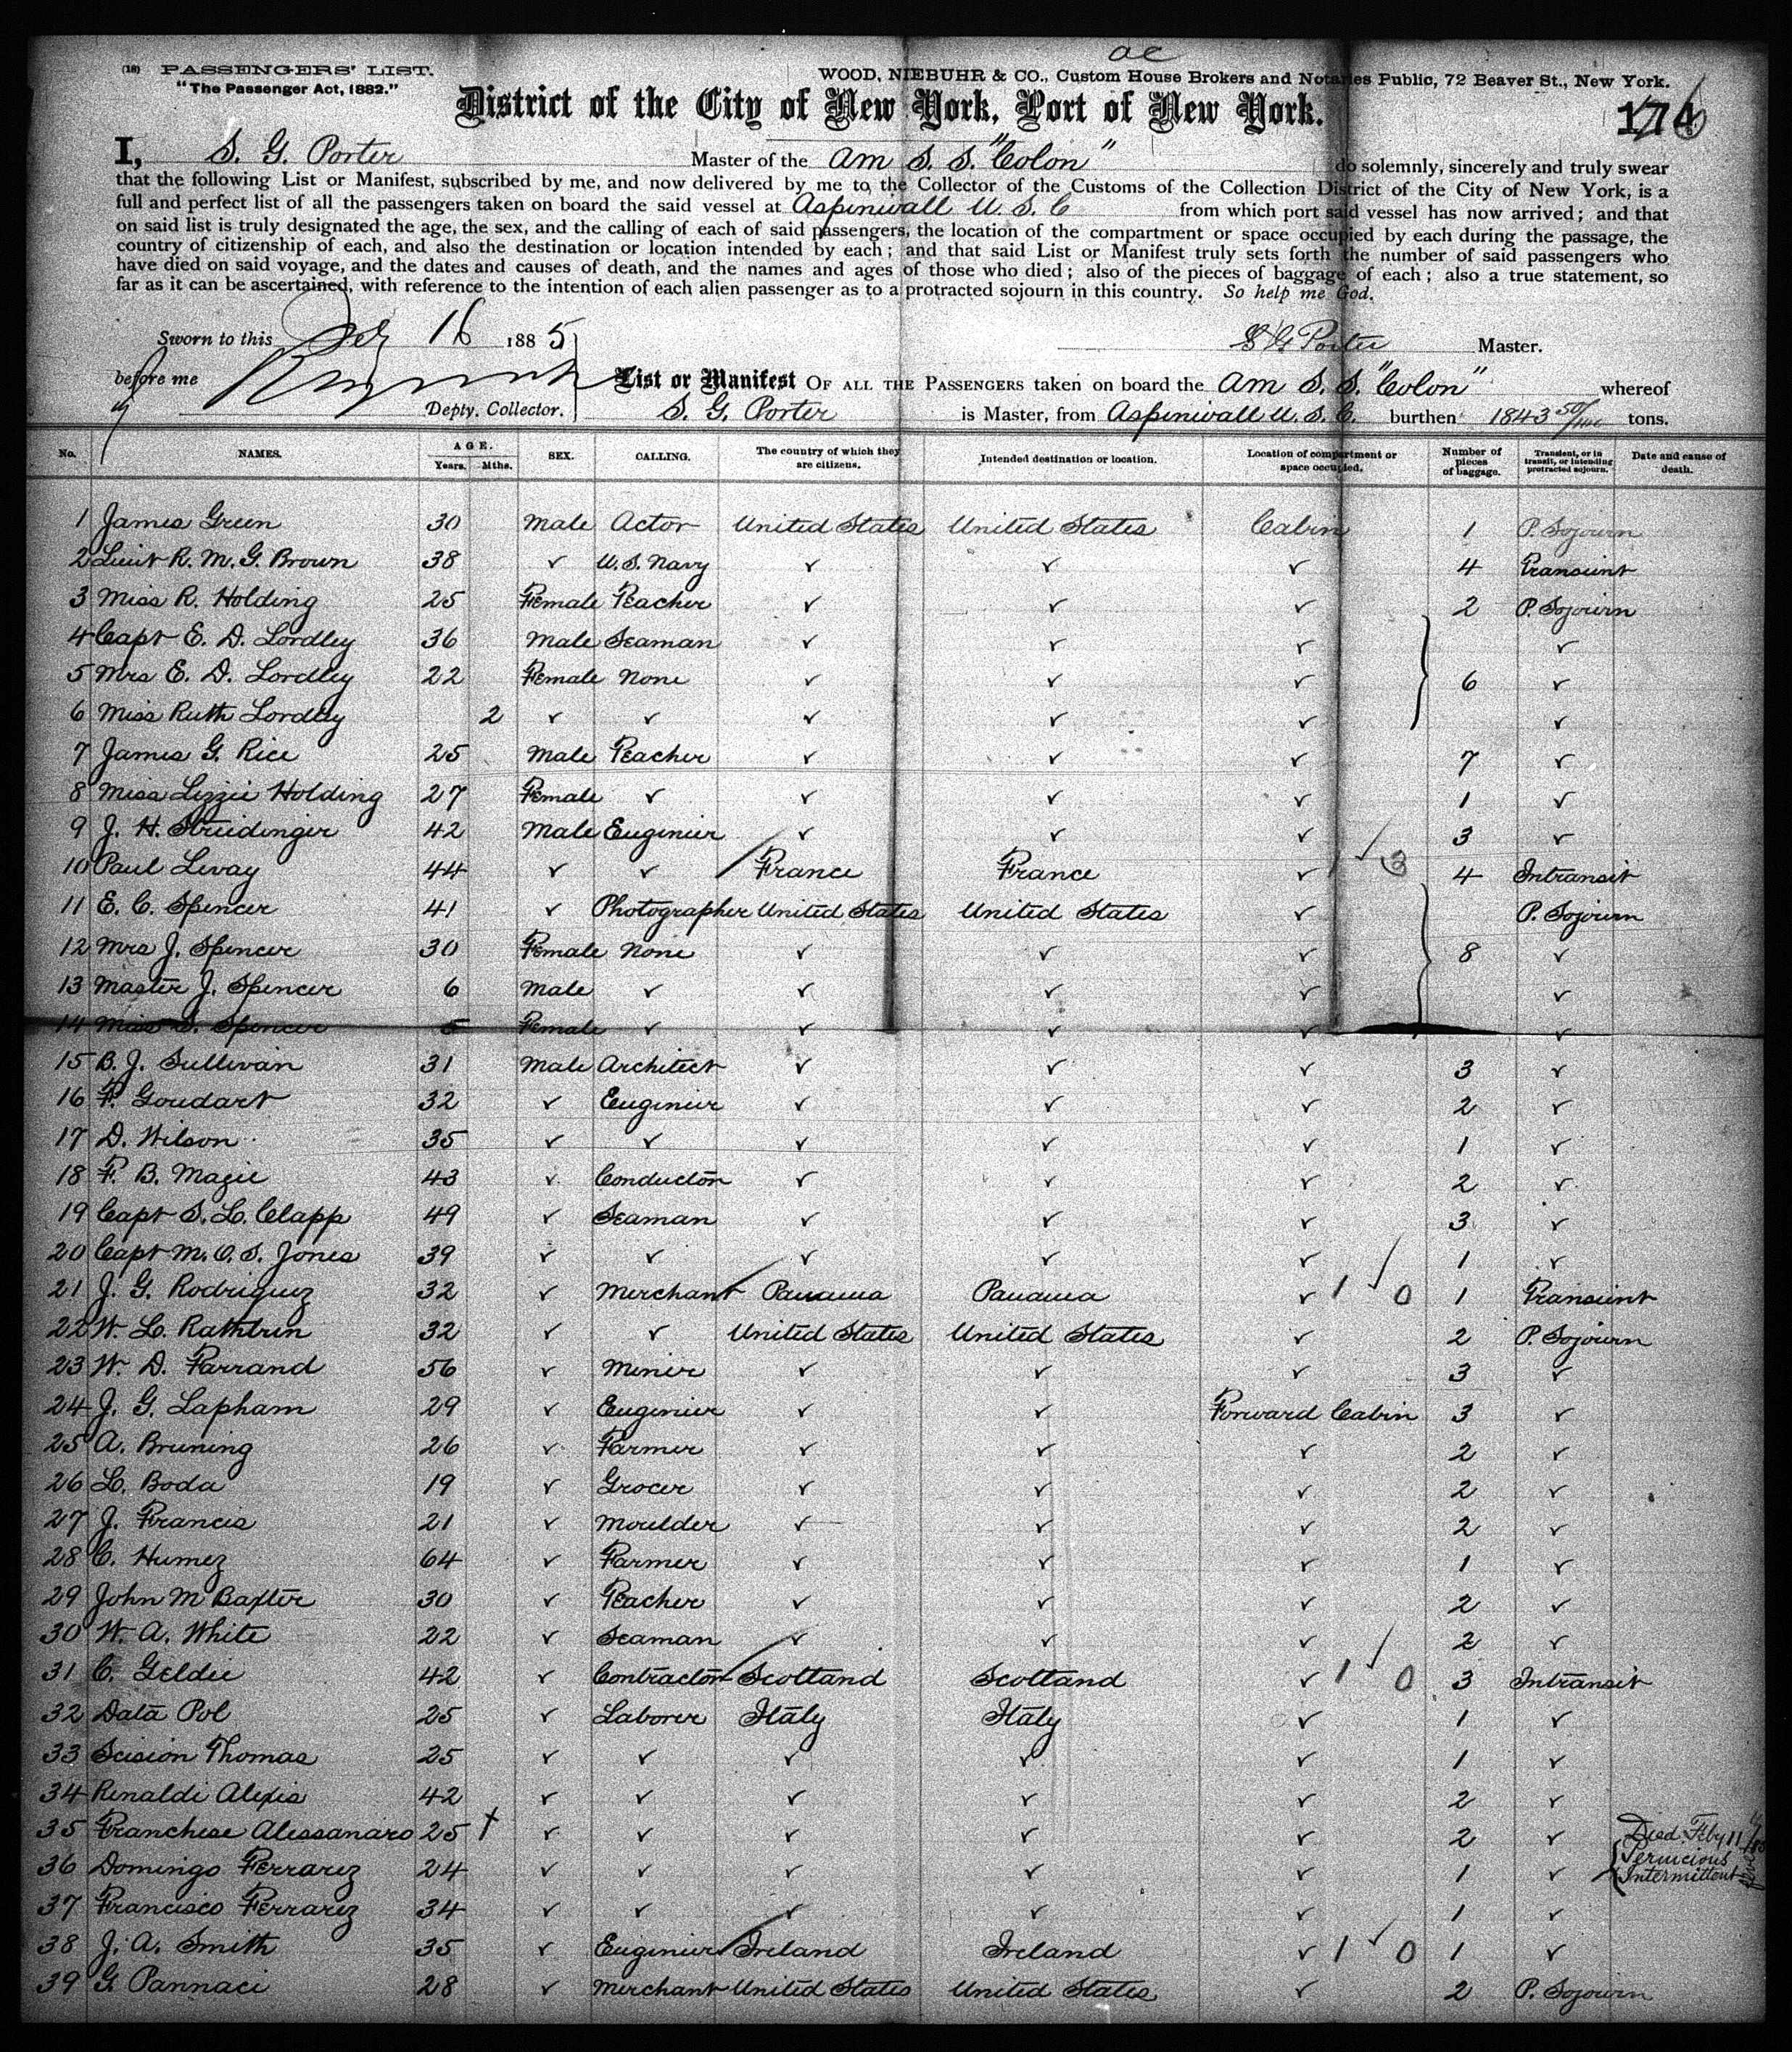 ac
(18) PASSENGERS' LIST.
"The Passenger Act, 1882."
WOOD, NIEBUHR & CO., Custom House Brokers and Notaries Public, 72 Beaver St., New York.
District of the City of New York, Port of New York.
174
I, S. G. Porter Master of the Am S. S. "Colon" do solemnly, sincerely and truly swear
that the following List or Manifest, subscribed by me, and now delivered by me to the Collector of the Customs of the Collection District of the City of New York, is a
full and perfect list of all the passengers taken on board the said vessel at Aspinwall U. S. C from which port said vessel has now arrived; and that
on said list is truly designated the age, the sex, and the calling of each of said passengers, the location of the compartment or space occupied by each during the passage, the
country of citizenship of each, and also the destination or location intended by each; and that said List or Manifest truly sets forth the number of said passengers who
have died on said voyage, and the dates and causes of death, and the names and ages of those who died; also of the pieces of baggage of each; also a true statement, so
far as it can be ascertained, with reference to the intention of each alien passenger as to a protracted sojourn in this country. So help me God.
Sworn to this Feb 16 1885
S G Porter Master.
before me
Depty. Collector.
List or Manifest OF ALL THE PASSENGERS taken on board the Am S. S. "Colon" whereof
S. G. Porter is Master, from Aspinwall U. S. C. burthen 1843 50/100 tons.
No. NAMES. AGE. Years. Mths. SEX. CALLING. The country of which they are citizens. Intended destination or location. Location of compartment or space occupied. Number of pieces of baggage. Transient, or in transit, or intending protracted sojourn. Date and cause of death.
1 James Green 30 Male Actor United States United States Cabin 1 P. Sojourn
2 Lieut R. M. G. Brown 38 ✓ U. S. Navy ✓ ✓ ✓ 4 Transient
3 Miss R. Holding 25 Female Teacher ✓ ✓ ✓ 2 P. Sojourn
4 Capt E. D. Lordley 36 Male Seaman ✓ ✓ ✓ ✓
5 Mrs E. D. Lordley 22 Female None ✓ ✓ ✓ 6 ✓
6 Miss Ruth Lordley 2 ✓ ✓ ✓ ✓ ✓ ✓
7 James G. Rice 25 Male Teacher ✓ ✓ ✓ 7 ✓
8 Miss Lizzie Holding 27 Female ✓ ✓ ✓ ✓ 1 ✓
9 J. H. Streidinger 42 Male Enginier ✓ ✓ ✓ 3 ✓
10 Paul Levay 44 ✓ ✓ France France ✓ 1 ✓ 3 4 Intransit
11 E. C. Spencer 41 ✓ Photographer United States United States ✓ P. Sojourn
12 Mrs J. Spencer 30 Female None ✓ ✓ ✓ 8 ✓
13 Master J. Spencer 6 Male ✓ ✓ ✓ ✓ ✓
14 Miss S. Spencer 5 Female ✓ ✓ ✓ ✓ ✓
15 B. J. Sullivan 31 Male Architect ✓ ✓ ✓ 3 ✓
16 F. Goudart 32 ✓ Enginier ✓ ✓ ✓ 2 ✓
17 D. Wilson 35 ✓ ✓ ✓ ✓ ✓ 1 ✓
18 F. B. Magie 43 ✓ Conductor ✓ ✓ ✓ 2 ✓
19 Capt S. L. Clapp 49 ✓ Seaman ✓ ✓ ✓ 3 ✓
20 Capt M. O. S. Jones 39 ✓ ✓ ✓ ✓ ✓ 1 ✓
21 J. G. Rodriguez 32 ✓ Merchant Panama Panama ✓ 1 ✓ 0 1 Transient
22 W. L. Rathbrin 32 ✓ ✓ United States United States ✓ 2 P. Sojourn
23 W. D. Farrand 56 ✓ Miner ✓ ✓ ✓ 3 ✓
24 J. G. Lapham 29 ✓ Enginier ✓ ✓ Forward Cabin 3 ✓
25 A. Bruning 26 ✓ Farmer ✓ ✓ ✓ 2 ✓
26 L. Boda 19 ✓ Grocer ✓ ✓ ✓ 2 ✓
27 J. Francis 21 ✓ Moulder ✓ ✓ ✓ 2 ✓
28 C. Humez 64 ✓ Farmer ✓ ✓ ✓ 1 ✓
29 John M Baxter 30 ✓ Teacher ✓ ✓ ✓ 2 ✓
30 W. A. White 22 ✓ Seaman ✓ ✓ ✓ 2 ✓
31 C. Geldie 42 ✓ Contractor Scotland Scotland ✓ 1 ✓ 0 3 Intransit
32 Data Pol 25 ✓ Laborer Italy Italy ✓ 1 ✓
33 Scision Thomas 25 ✓ ✓ ✓ ✓ ✓ 1 ✓
34 Renaldi Alexis 42 ✓ ✓ ✓ ✓ ✓ 2 ✓
35 Franchese Alessanaro 25 † ✓ ✓ ✓ ✓ ✓ 2 ✓ Died Feby 11/85
36 Domingo Ferrarez 24 ✓ ✓ ✓ ✓ ✓ 1 ✓ Pernicious Intermittent
37 Francisco Ferrarez 34 ✓ ✓ ✓ ✓ ✓ 1 ✓
38 J. A. Smith 35 ✓ Enginier Ireland Ireland ✓ 1 ✓ 0 1 ✓
39 G. Pannaci 28 ✓ Merchant United States United States ✓ 2 P. Sojourn